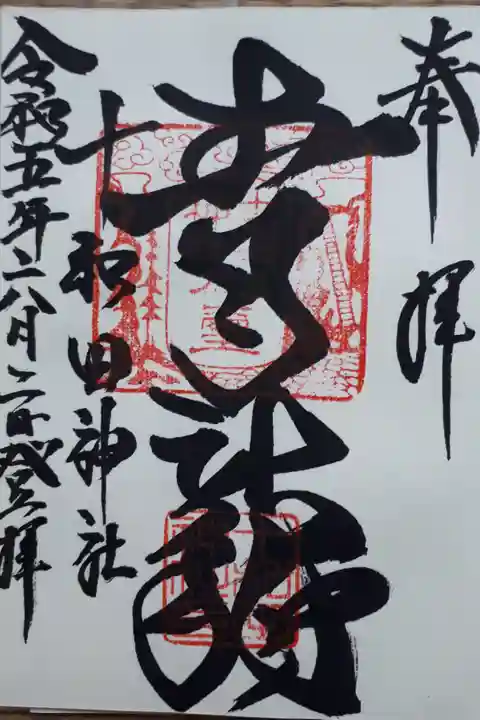 奉拝
青龍
十和田神社
令和五年六月二日登拝